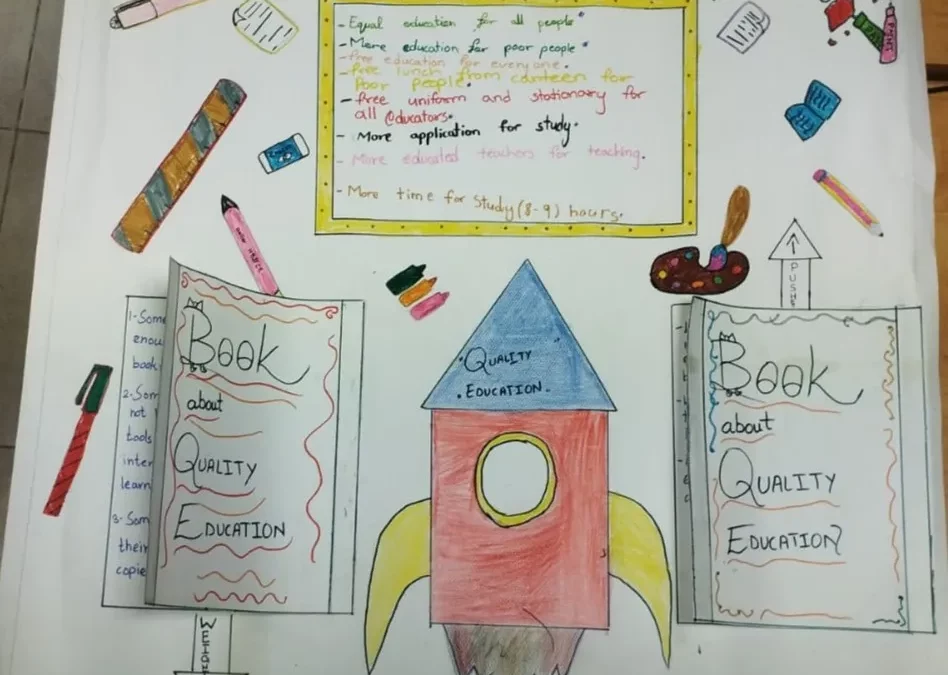 - Equal education for all people
- More education for poor people
- free education for everyone.
- free lunch from canteen for
poor people.
- free uniform and stationary for
all educators.
- More application for study.
- More educated teachers for teaching.
- More time for study (8-9) hours.
1- Some
enou
book
2- Som
not
tools
inter
learn
3- Som
their
copie
Book
about
Quality
Education
WEIGH
"QUALITY
EDUCATION.
PUSH
Book
about
Quality
Education